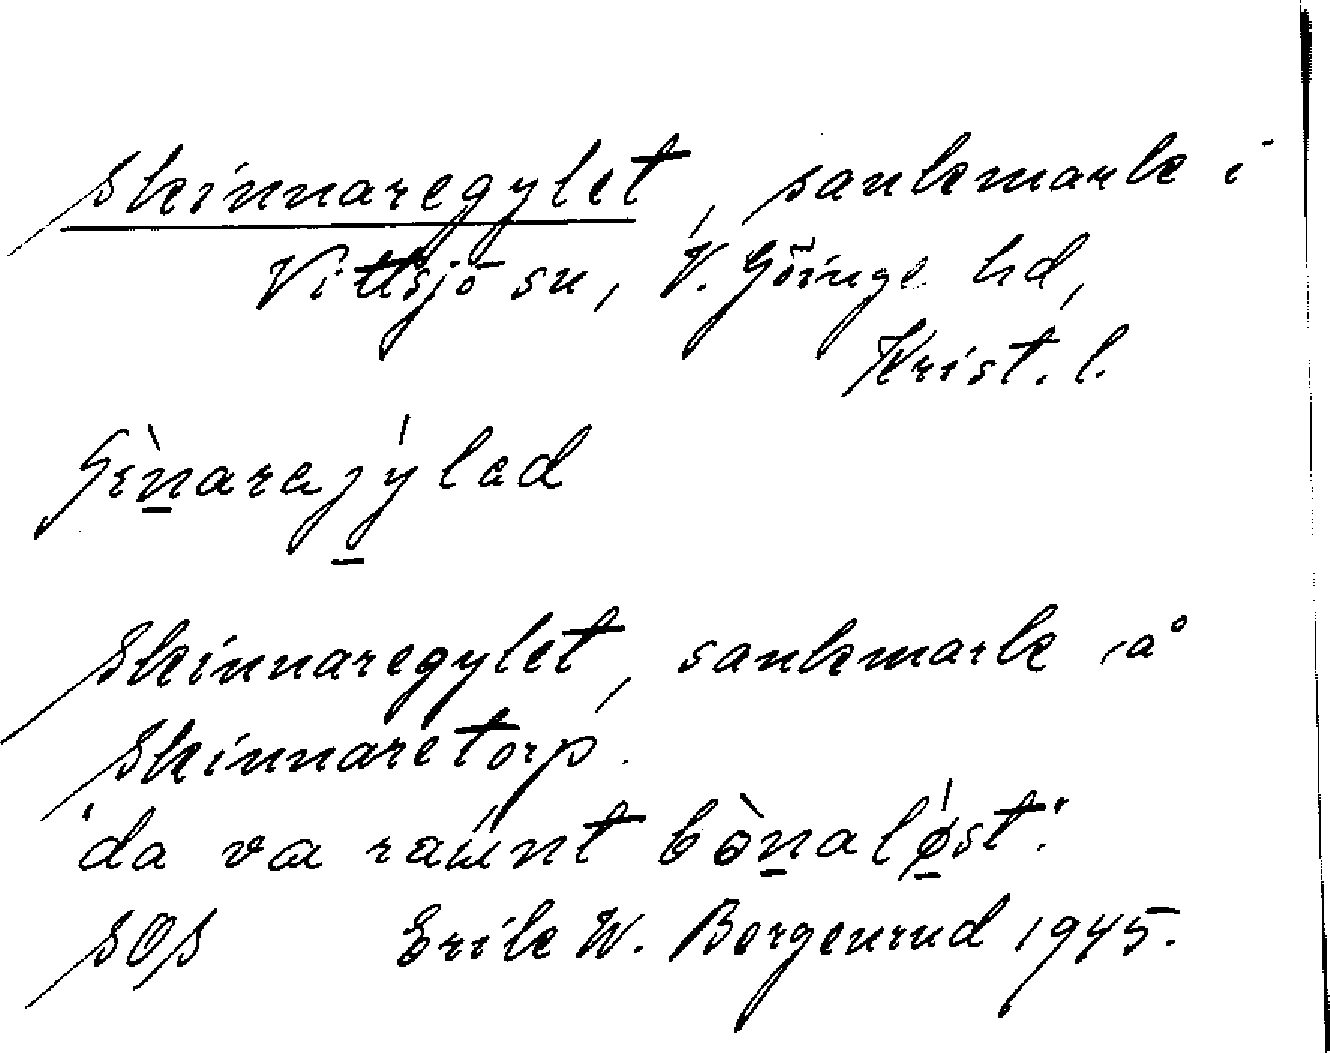 Skinnaregylet, sankmark i
Vittsjö sn, V. Göinge hd,
Krist. l.
Skinnaregylet, sankmark på
Skinnaretorp.
"da va bònaløst".
SOS Erik W. Bergenrud 1945.